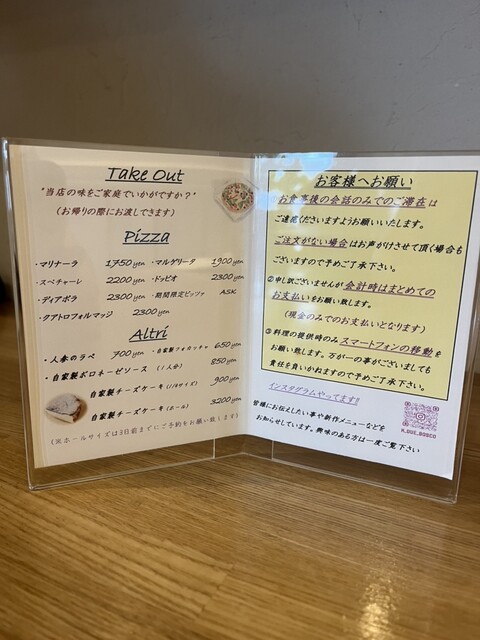 Take Out
"当店の味をご家庭でいかがですか？"
(お帰りの際にお渡しできます)
Pizza
・マリナーラ 1750yen ・マルゲリータ 1900yen
・スペチャーレ 2200yen ・ドッピオ 2300yen
・ディアボラ 2300yen ・期間限定ピッツァ ASK
・クアトロフォルマッジ 2300yen
Altri
・人参のラペ 700yen ・自家製フォカッチャ 650yen
・自家製ボロネーゼソース (1人分) 850yen
自家製チーズケーキ (1/8サイズ) 900yen
自家製チーズケーキ (ホール) 3200yen
(※ホールサイズは3日前までにご予約をお願い致します)
お客様へお願い
お食事後の会話のみでのご滞在は
ご遠慮くださいますようお願いいたします。
ご注文がない場合はお声がけさせて頂く場合も
ございますので予めご了承下さい。
②申し訳ございませんが会計時はまとめての
お支払いをお願い致します。
(現金のみでのお支払いとなります)
③料理の提供時のみスマートフォンの移動を
お願い致します。万が一の事がございましても
責任を負いかねますので予めご了承下さい。
インスタグラムやってます!!
皆様にお伝えしたい事や新作メニューなどを
お知らせしています。興味のある方は一度ご覧下さい